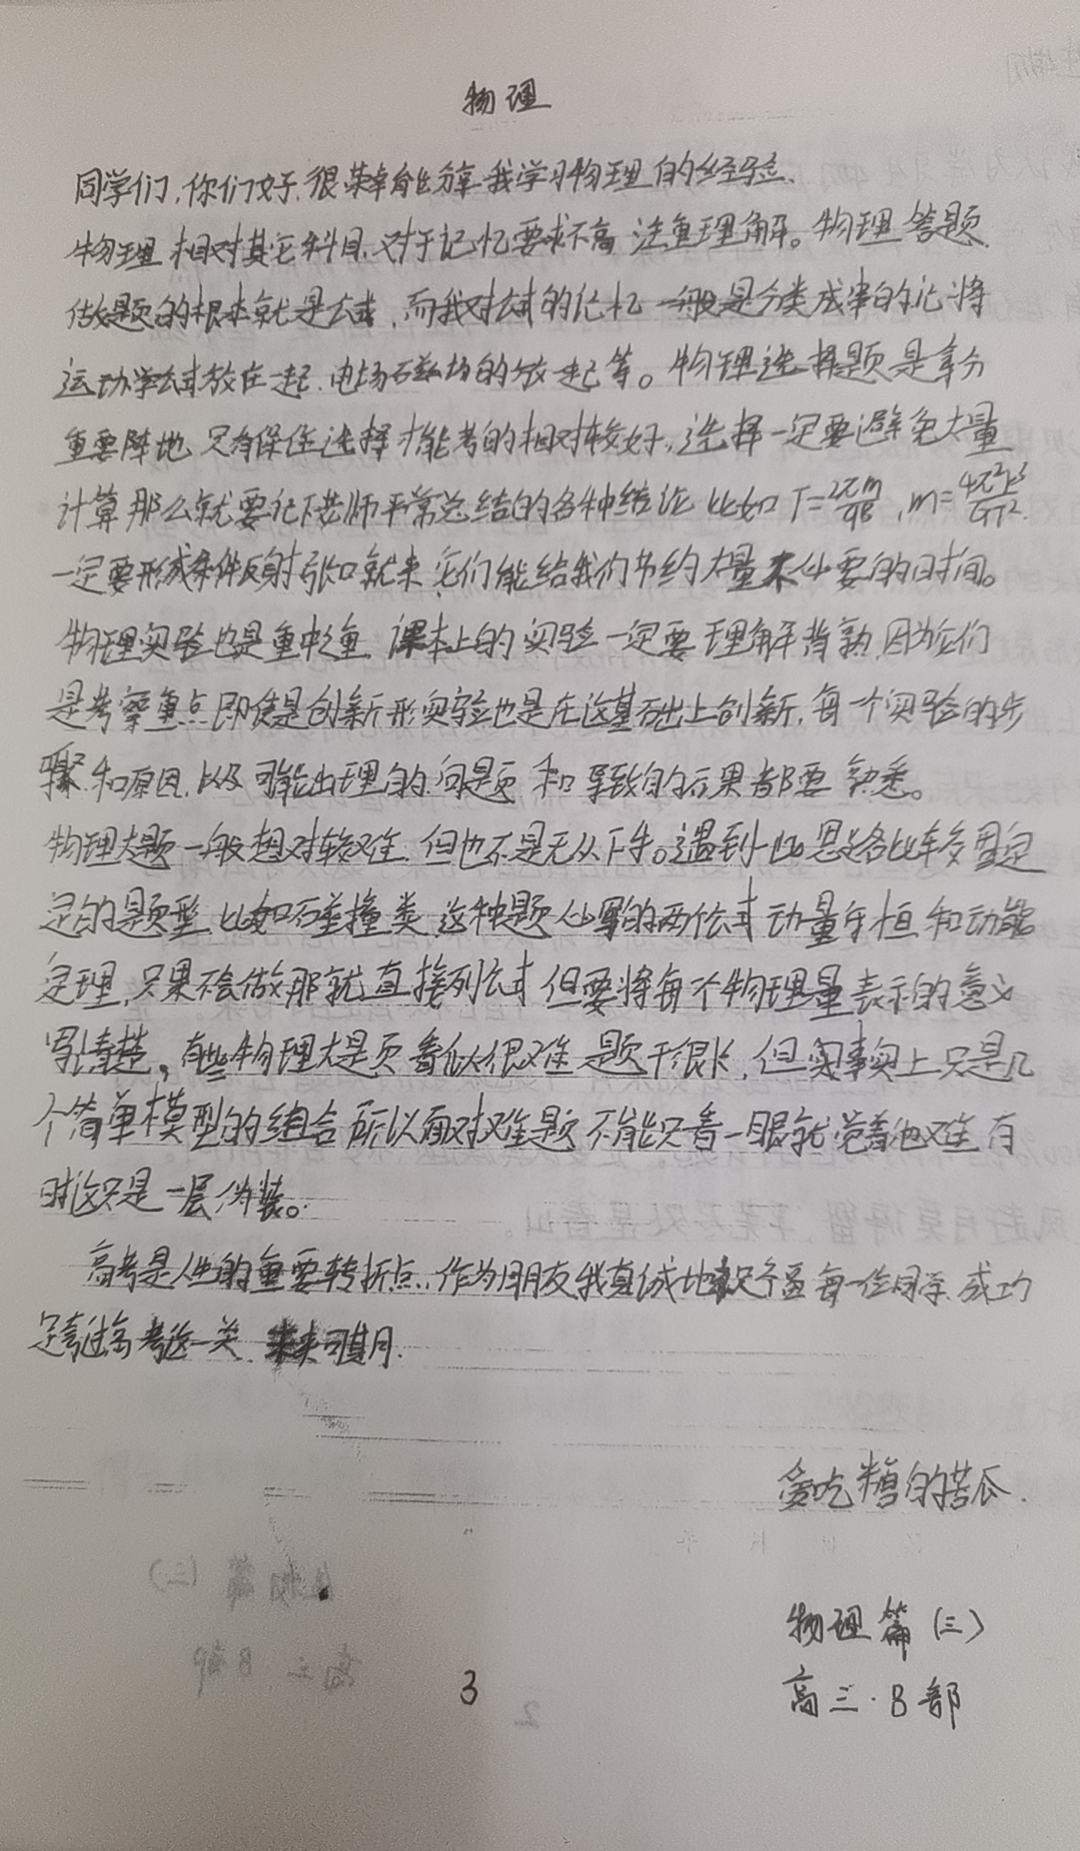 物理
同学们,你们好.很荣幸能分享我学习物理的经验.
物理相对其它科目,对于记忆要求不高 注重理解。物理答题.
做题的根本就是公式,而我对公式的记忆一般是分类成串的记将
运动学公式放在一起.电场磁场的放一起等。物理选择题是拿分
重要阵地 只有保住选择才能考的相对较好,选择一定要避免大量
计算那么就要记下老师平常总结的各种结论 比如 T=2πm/qB ,m=4π²r³/GT².
一定要形成条件反射张口就来 它们能给我们节约大量不必要的时间。
物理实验也是重中之重,课本上的实验一定要理解背熟,因为它们
是考察重点即使是创新形实验也是在这基础上创新,每一个实验的步
骤和原因,以及可能出现的问题和导致的后果都要熟悉。
物理大题一般想对较难,但也不是无从下手。遇到一些思路比较固定
定的题型 比如碰撞类 这种题必写的两公式动量守恒和动能
定理,只果不会做那就直接列公式但要将每个物理量表示的意义
写清楚,有些物理大题页看似很难题干很长,但实事实上只是几
个简单模型的组合所以面对难题不能只看一眼就觉着他难有
时这只是一层伪装。
高考是人生的重要转折点.作为朋友我真诚地祝愿每一位同学,成功
跨过高考这一关 未来可期.
爱吃糖的苦瓜.
物理篇(三)
高三·B部
3